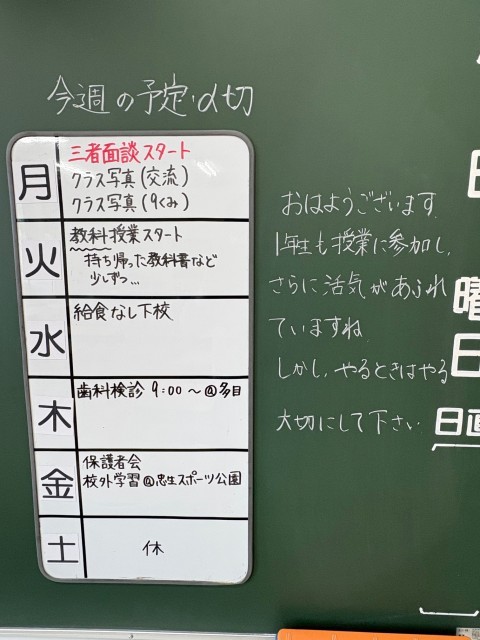 今週の予定・〆切
月
三者面談スタート
クラス写真(交流)
クラス写真(9くみ)
火
教科授業スタート
持ち帰った教科書など
少しずつ…
水
給食なし下校
木
歯科検診 9:00〜@多目
金
保護者会
校外学習@忠生スポーツ公園
土
休
おはようございます.
1年生も授業に参加し,
さらに活気があふれ
ていますね.
しかし,やるときはやる
大切にして下さい.
曜
日
日直